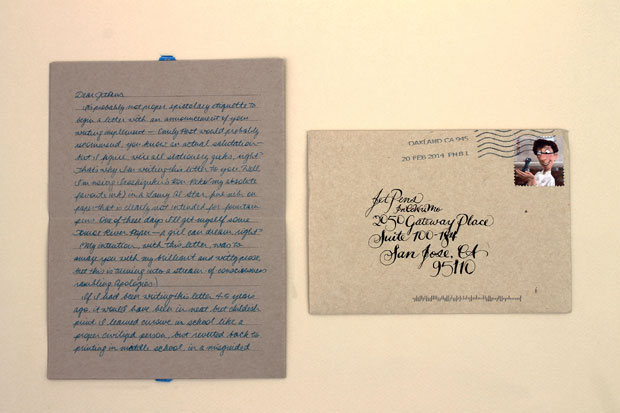 Dear JetPens
It's probably not proper epistolary etiquette to
begin a letter with an announcement of your
writing implement – Emily Post would probably
recommend, you know, an actual salutation –
but I figure, we're all stationery geeks, right?
That's why I'm writing this letter to you. Well
I'm using Iroshizuku Kon-Peki (my absolute
favorite ink) in a Lamy Al Star, for sub, on
paper that is clearly not intended for fountain
pens. One of these days I'll get myself some
Tomoe River Paper – a girl can dream, right?
(My intention, with this letter, was to
amaze you with my brilliant and witty prose,
but this is turning into a stream of consciousness
rambling. Apologies.)
If I had been writing this letter 4-5 years
ago, it would have been in neat but childish
print. I learned cursive in school like a
proper civilized person, but reverted back to
printing in middle school in a misguided
OAKLAND CA 945
20 FEB 2014 PM 8 L
Jet Pens
InCoWriMo
2050 Gateway Place
Suite 700-184
San Jose, CA
95110